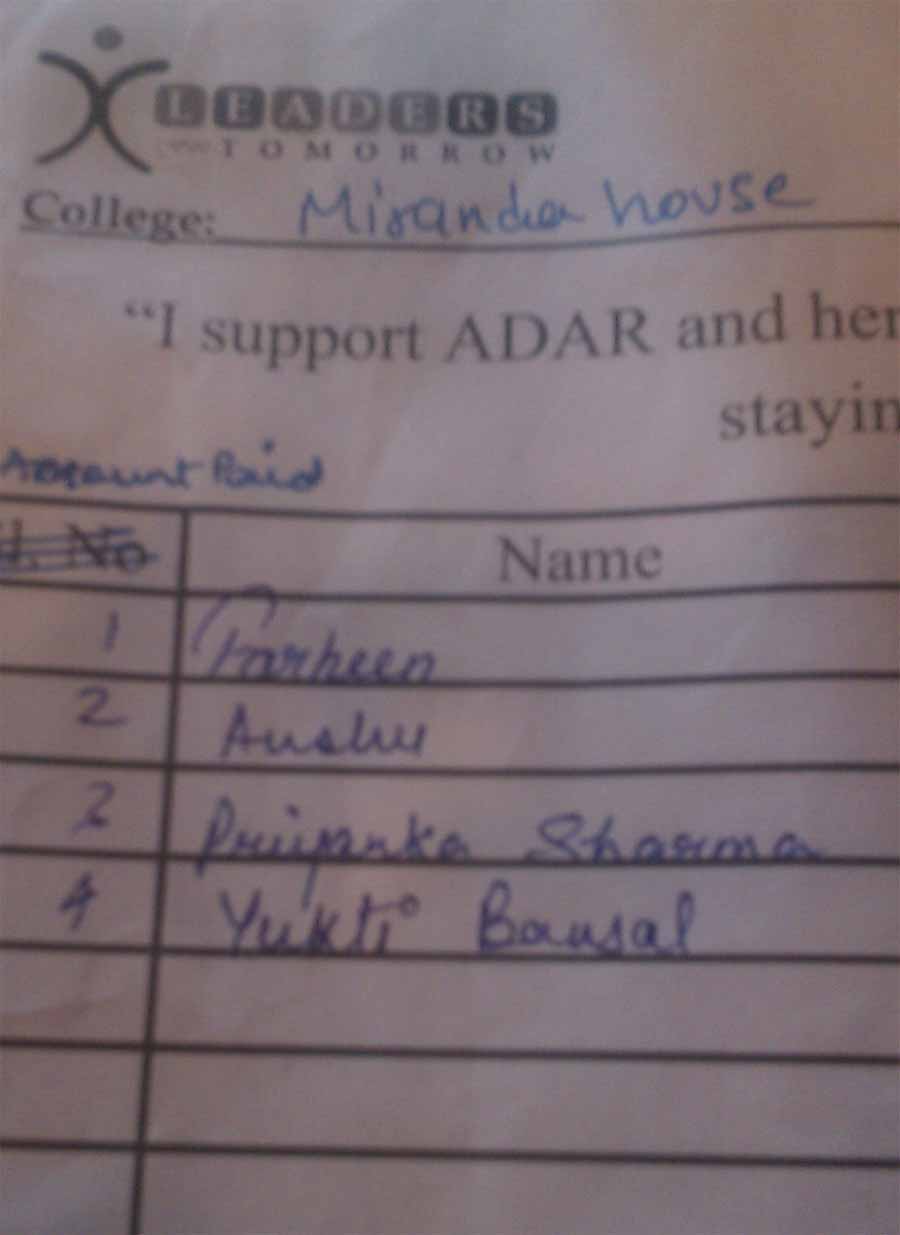 LEADERS
TOMORROW
College: Miranda house
“I support ADAR and her
stayin
Amount Paid
l. No Name
1 Farheen
2 Anshu
3 Priyanka Sharma
4 Yukti Bansal